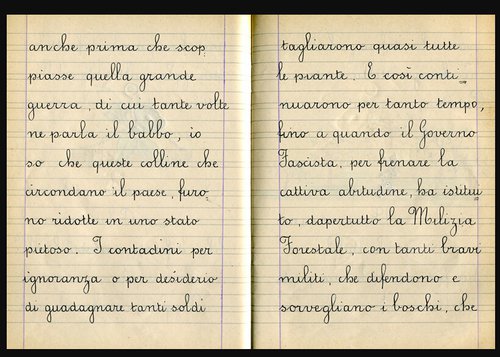 anche prima che scop
piasse quella grande
guerra, di cui tante volte
ne parla il babbo, io
so che queste colline che
circondano il paese, furo,
no ridotte in uno stato
pietoso. I contadini per
ignoranza o per desiderio
di guadagnare tanti soldi
tagliarono quasi tutte
le piante. E così conti_
nuarono per tanto tempo,
fino a quando il Governo
Fascista, per frenare la
cattiva abitudine, ha istitui
to, dapertutto la Milizia
Forestale, con tanti bravi
militi, che difendono e
sorvegliano i boschi, che